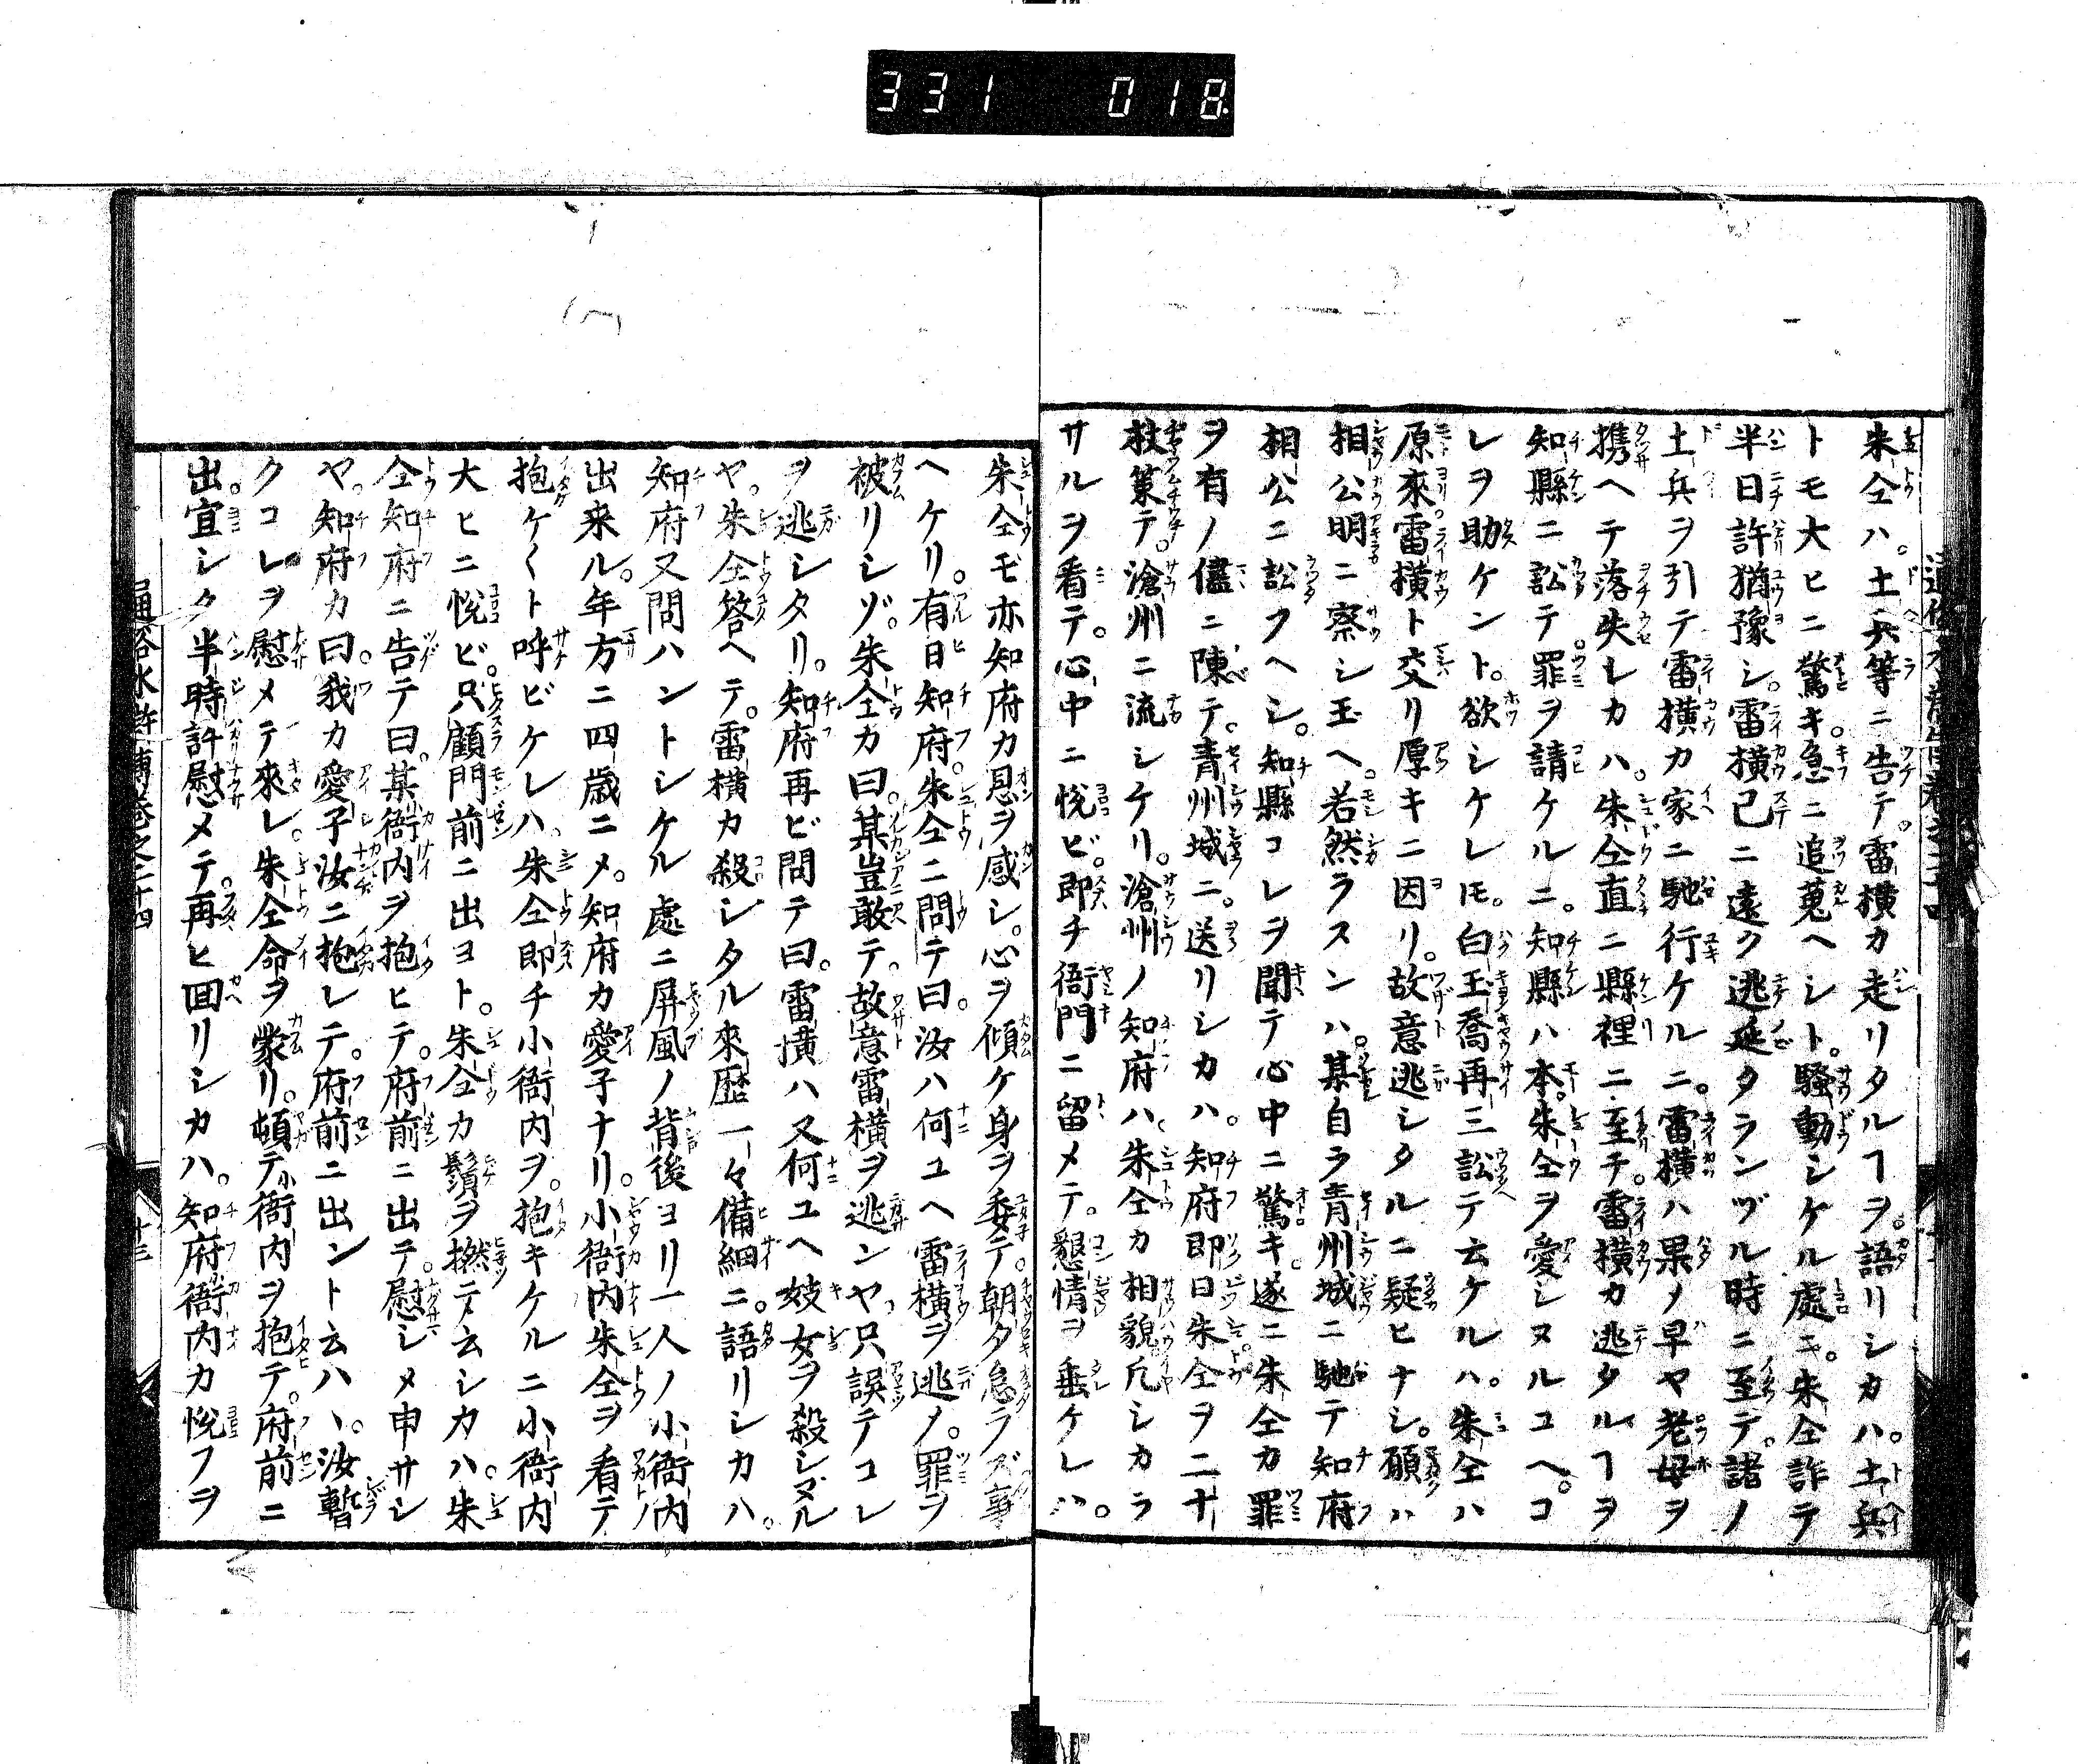 331 018
朱仝ハ。土兵等ニ告テ。雷横カ走リタルヿヲ。語リシカハ。土兵
トモ大ヒニ驚キ。急ニ追蒐ヘシト。騒動シケル處ニ。朱仝詐テ
半日許猶豫シ。雷横已ニ遠ク逃延タランヅル時ニ至テ。諸ノ
土兵ヲ引テ雷横カ家ニ馳行ケルニ。雷横ハ果メ早ヤ老母ヲ
携ヘテ落失レカハ。朱仝直ニ縣裡ニ至テ。雷横カ逃タルヿヲ
知縣ニ訟テ罪ヲ請ケルニ。知縣ハ本。朱仝ヲ愛シヌルユヘ。コ
レヲ助ケント。欲シケレ𪜈。白玉喬再三訟テ云ケルハ。朱仝ハ
原來雷横ト交リ厚キニ因リ。故意逃シタルニ疑ヒナシ。願ハ
相公明ニ察シ玉ヘ。若然ラスンハ。某自ラ青州城ニ馳テ知府
相公ニ訟フヘシ。知縣コレヲ聞テ心中ニ驚キ。遂ニ朱仝カ罪
ヲ有ノ儘ニ陳テ。青州城ニ。送リシカハ。知府即日朱仝ヲ二十
杖策テ。滄州ニ流シケリ。滄州ノ知府ハ。朱仝カ相貌凡シカラ
サルヲ看テ。心中ニ悦ビ。即チ衙門ニ留メテ。懇情ヲ垂ケレハ。
朱仝モ亦知府カ恩ヲ感シ。心ヲ傾ケ身ヲ委テ。朝夕怠ラズ事
ヘケリ。有日知府。朱仝ニ問テ曰。汝ハ何ユヘ雷横ヲ逃ノ。罪ヲ
被リシゾ。朱仝カ曰。某豈敢テ。故意雷横ヲ逃ンヤ。只誤テコレ
ヲ逃シタリ。知府再ビ問テ曰。雷横ハ又何ユヘ妓女ヲ殺シヌル
ヤ。朱仝答ヘテ。雷横カ殺シタル來歴一々備細ニ。語リシカハ。
知府又問ハントシケル處ニ屏風ノ背後ヨリ一人ノ小衙内
出来ル。年方ニ四歳ニメ。知府カ愛子ナリ。小衙内朱仝ヲ看テ
抱ケ〱ト呼ビケレハ。朱仝即チ小衙内ヲ。抱キケルニ小衙内
大ヒニ悦ビ。只顧門前ニ出ヨト。朱仝カ鬚ヲ撚テ云シカハ。朱
仝知府ニ告テ曰。某衙内ヲ抱ヒテ。府前ニ出テ。慰シメ申サシ
ヤ。知府カ曰。我カ愛子汝ニ抱レテ。府前ニ出ント云ハヽ。汝暫
クコレヲ慰メテ來レ。朱仝命ヲ蒙リ。頓テ小衙内ヲ抱テ。府前ニ
出。宜シク半時許慰メテ。再ヒ囬リシカハ。知府衙内カ悦フヲ
通俗水滸傳卷之二十四
十三